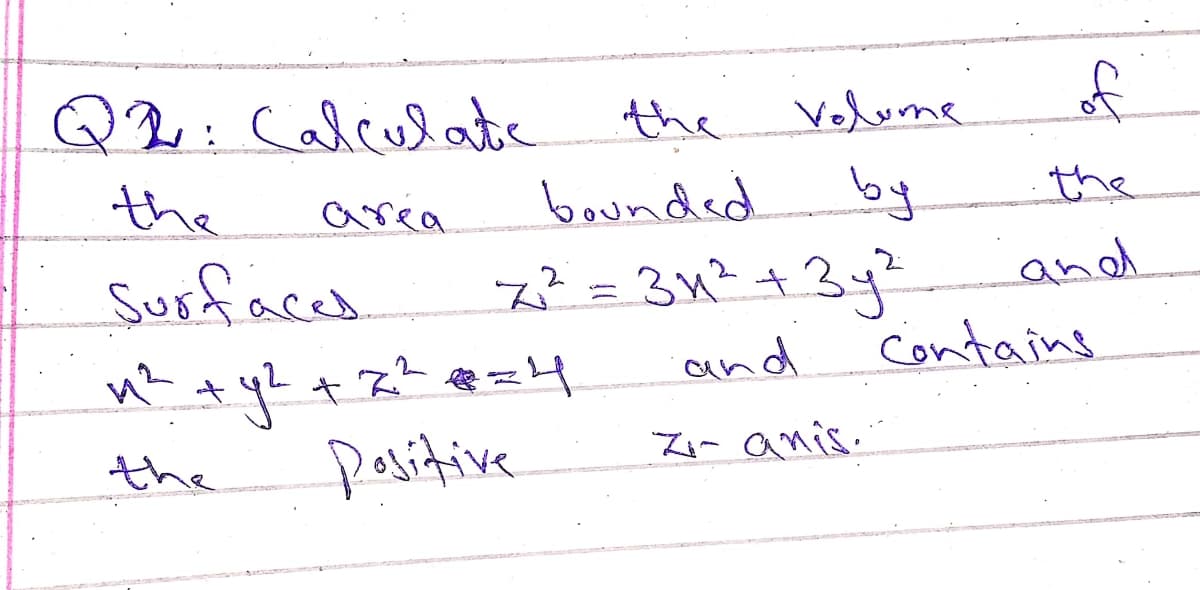 Q2: Calculate the volume of
the area bounded by the
surfaces z² = 3x² + 3y² and
x² + y² + z² = 4 and contains
the positive z-axis.